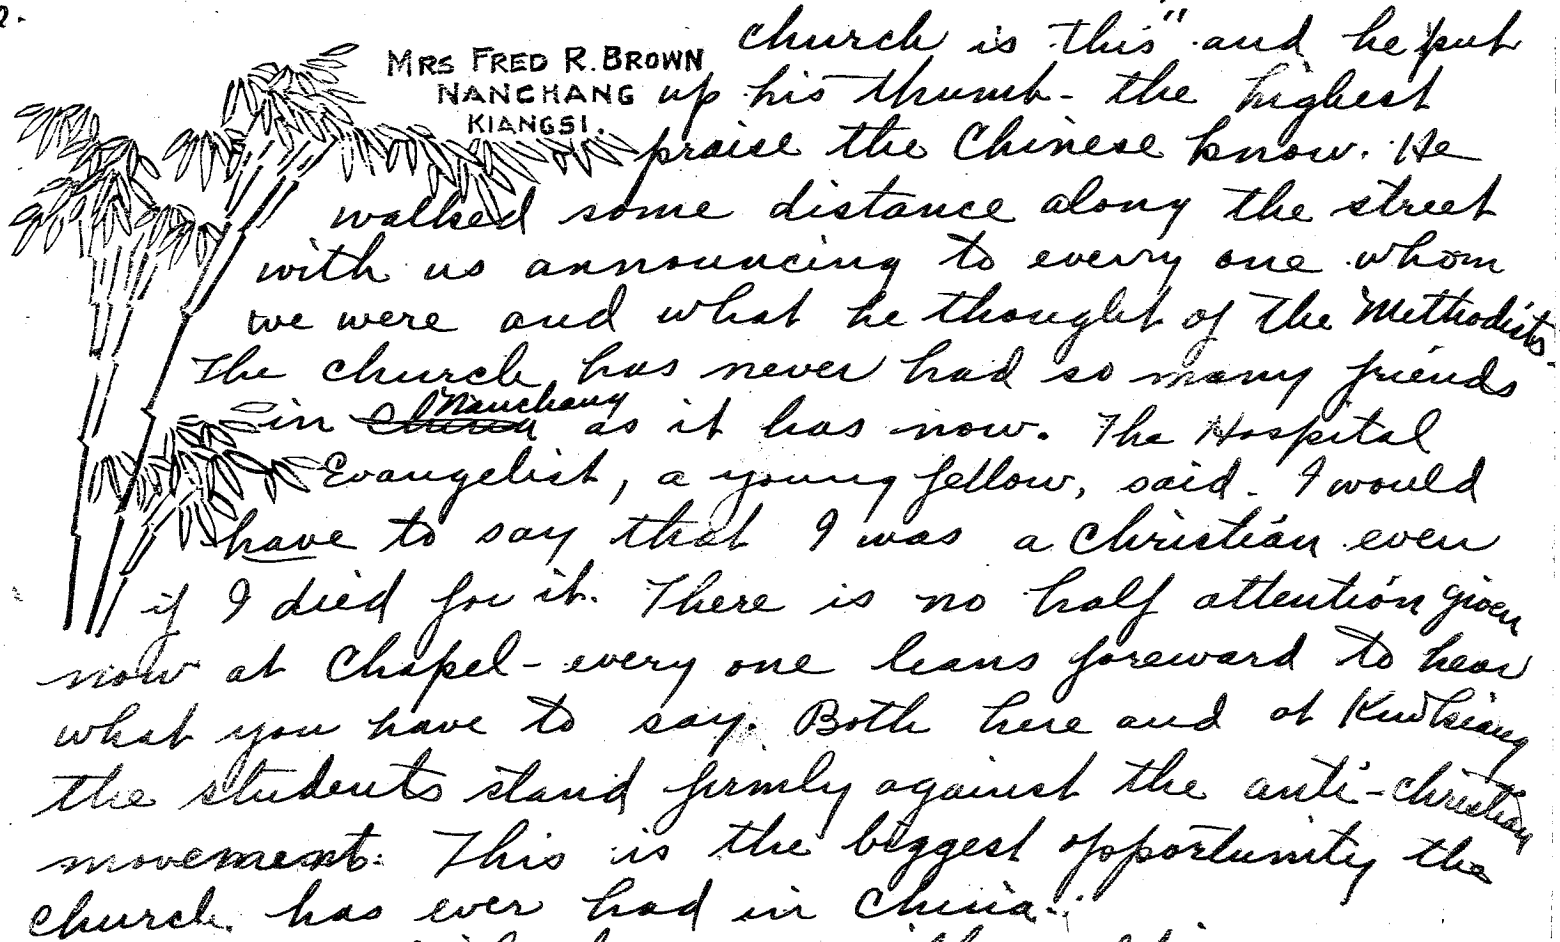 2.
MRS FRED R. BROWN
NANCHANG
KIANGSI.
church is this" and he put
up his thumb - the highest
praise the Chinese know. He
walked some distance along the street
with us announcing to every one whom
we were and what he thought of the Methodists.
The church has never had so many friends
in China Nanchang as it has now. The Hospital
Evangelist, a young fellow, said - I would
have to say that I was a Christian even
if I died for it. There is no half attention given
now at Chapel - every one leans foreward to hear
what you have to say. Both here and at Kiukiang
the students stand firmly against the anti-Christian
movement. This is the biggest opportunity the
church has ever had in China.